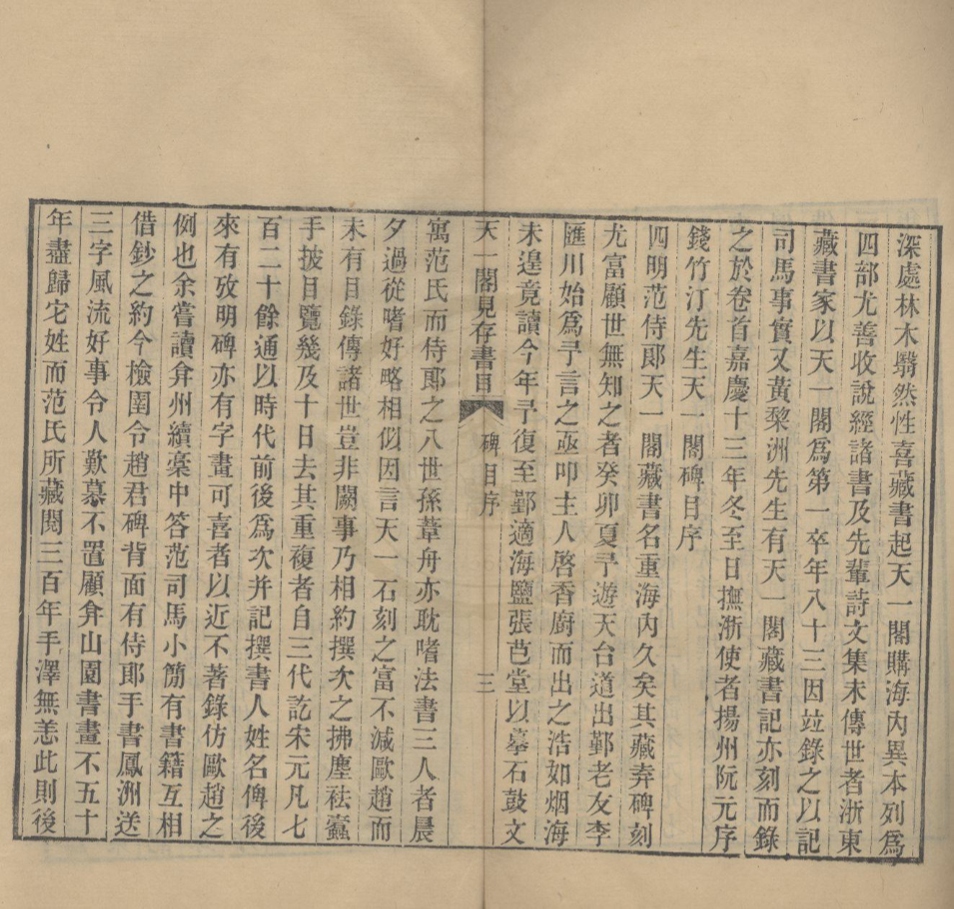 深處林木翳然性喜藏書起天一閣購海內異本列爲
四部尤善收說經諸書及先輩詩文集未傳世者浙東
藏書家以天一閣爲第一卒年八十三因竝錄之以記
司馬事實又黃黎洲先生有天一閣藏書記亦刻而錄
之於卷首嘉慶十三年冬至日撫浙使者揚州阮元序
錢竹汀先生天一閣碑目序
四明范侍郎天一閣藏書名重海內久矣其藏弆碑刻
尤富顧世無知之者癸卯夏予遊天台道出鄞老友李
匯川始爲予言之亟叩主人啓香廚而出之浩如烟海
未遑竟讀今年予復至鄞適海鹽張芑堂以摹石鼓文
天一閣見存書目 碑目序 三
寓范氏而侍郎之八世孫葦舟亦耽嗜法書三人者晨
夕過從嗜好略相似因言天一石刻之富不減歐趙而
未有目錄傳諸世豈非闕事乃相約撰次之拂塵祛蠹
手披目覽幾及十日去其重複者自三代訖宋元凡七
百二十餘通以時代前後爲次并記撰書人姓名俾後
來有攷明碑亦有字畫可喜者以近不著錄仿歐趙之
例也余嘗讀弇州續稾中答范司馬小簡有書籍互相
借鈔之約今檢圍令趙君碑背面有侍郎手書鳳洲送
三字風流好事令人歎慕不置顧弇山園書畫不五十
年盡歸宅姓而范氏所藏閱三百年手澤無恙此則後